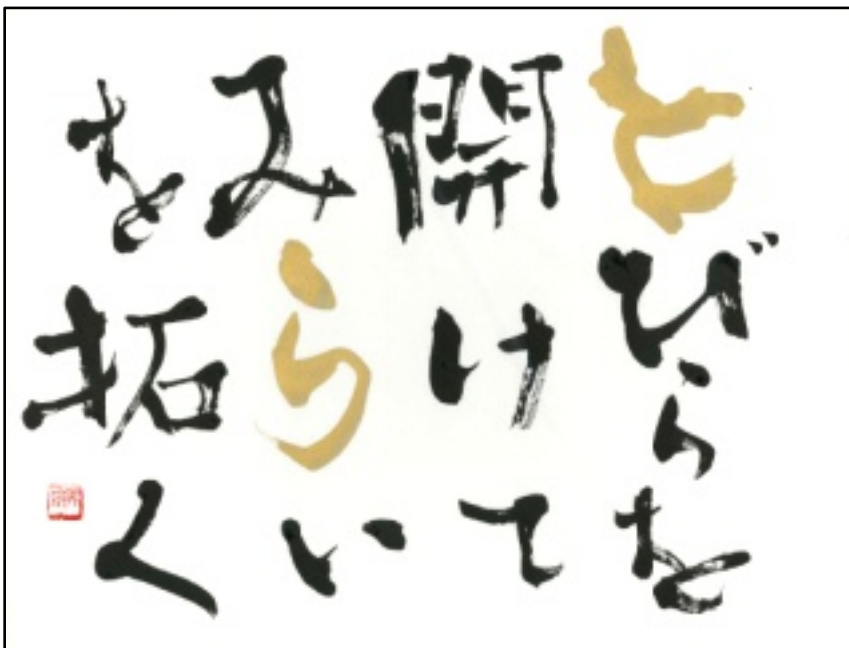 とびらを
開けて
みらい
を拓く